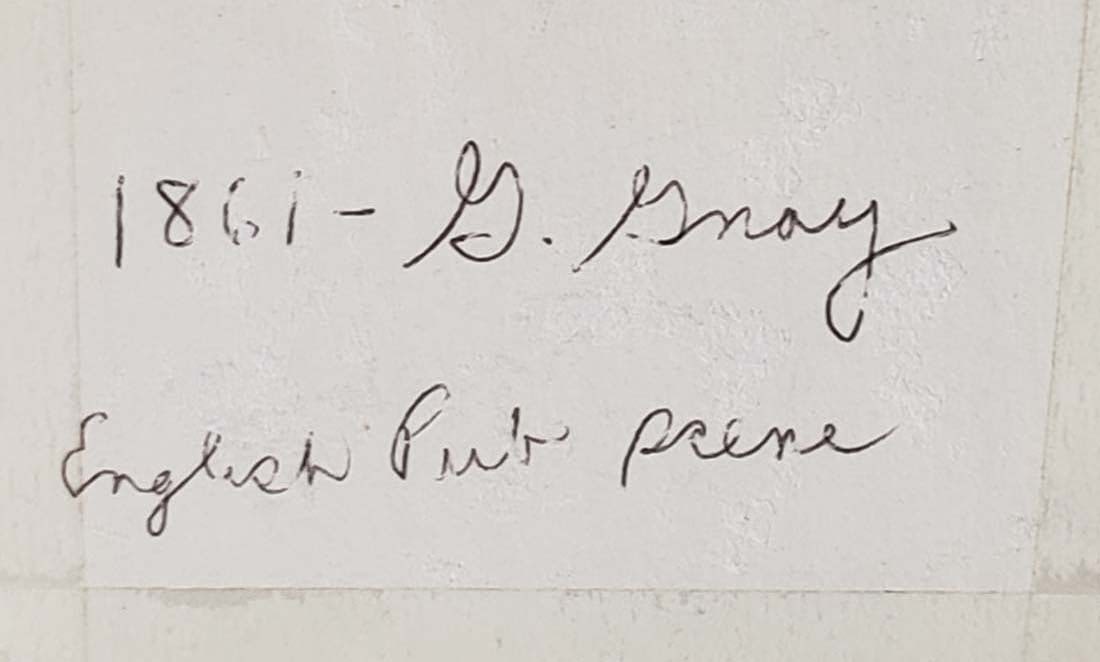 1861 - G. Gray
English Pub scene